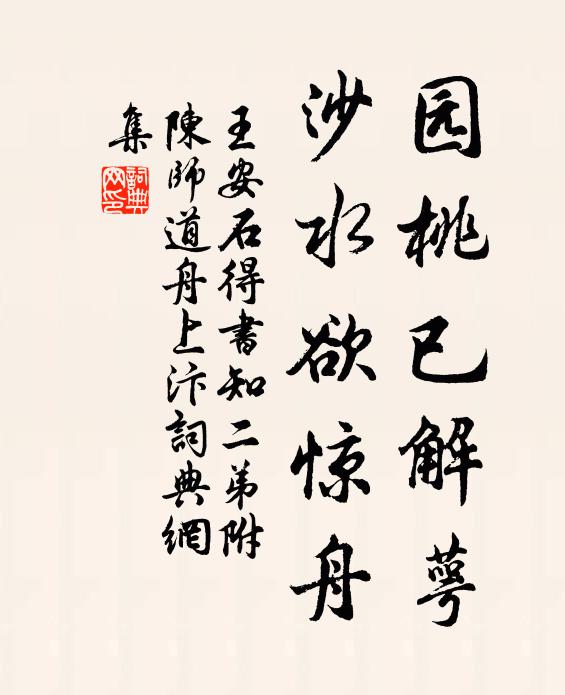 园桃已解萼
沙水欲惊舟
王安石得書知二弟附
陳師道舟上汴詞典網
集
詞典
网印